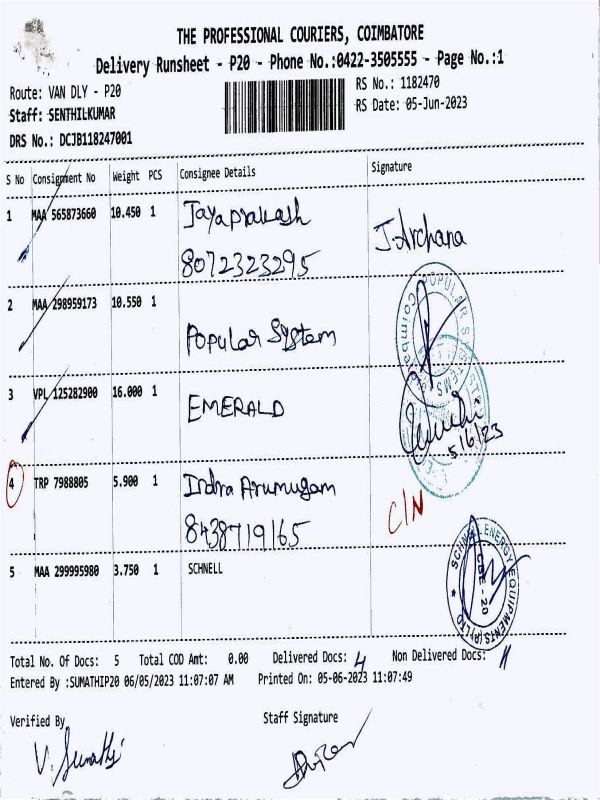 THE PROFESSIONAL COURIERS, COIMBATORE
Delivery Runsheet - P20 - Phone No.:0422-3505555 - Page No.:1
Route: VAN DLY - P20
RS No.: 1182470
Staff: SENTHILKUMAR
RS Date: 05-Jun-2023
DRS No.: DCJB118247001
S No Consignment No Weight PCS Consignee Details Signature
1 MAA 565873660 10.450 1 Jayaprakash J.Archana
8072323295
2 MAA 298959173 10.550 1 Popular System
POPULAR SYSTEMS
Coimbatore
3 VPL 125282900 16.000 1 EMERALD
5/6/23
4 TRP 7988805 5.900 1 Indra Arumugam C/N
8438719165
5 MAA 299995980 3.750 1 SCHNELL
SCHNELL ENERGY EQUIPMENTS (P) LTD
CBE-20
Total No. Of Docs: 5 Total COD Amt: 0.00 Delivered Docs: 4 Non Delivered Docs: 1
Entered By :SUMATHIP20 06/05/2023 11:07:07 AM Printed On: 05-06-2023 11:07:49
Verified By Staff Signature
V. Sumathi